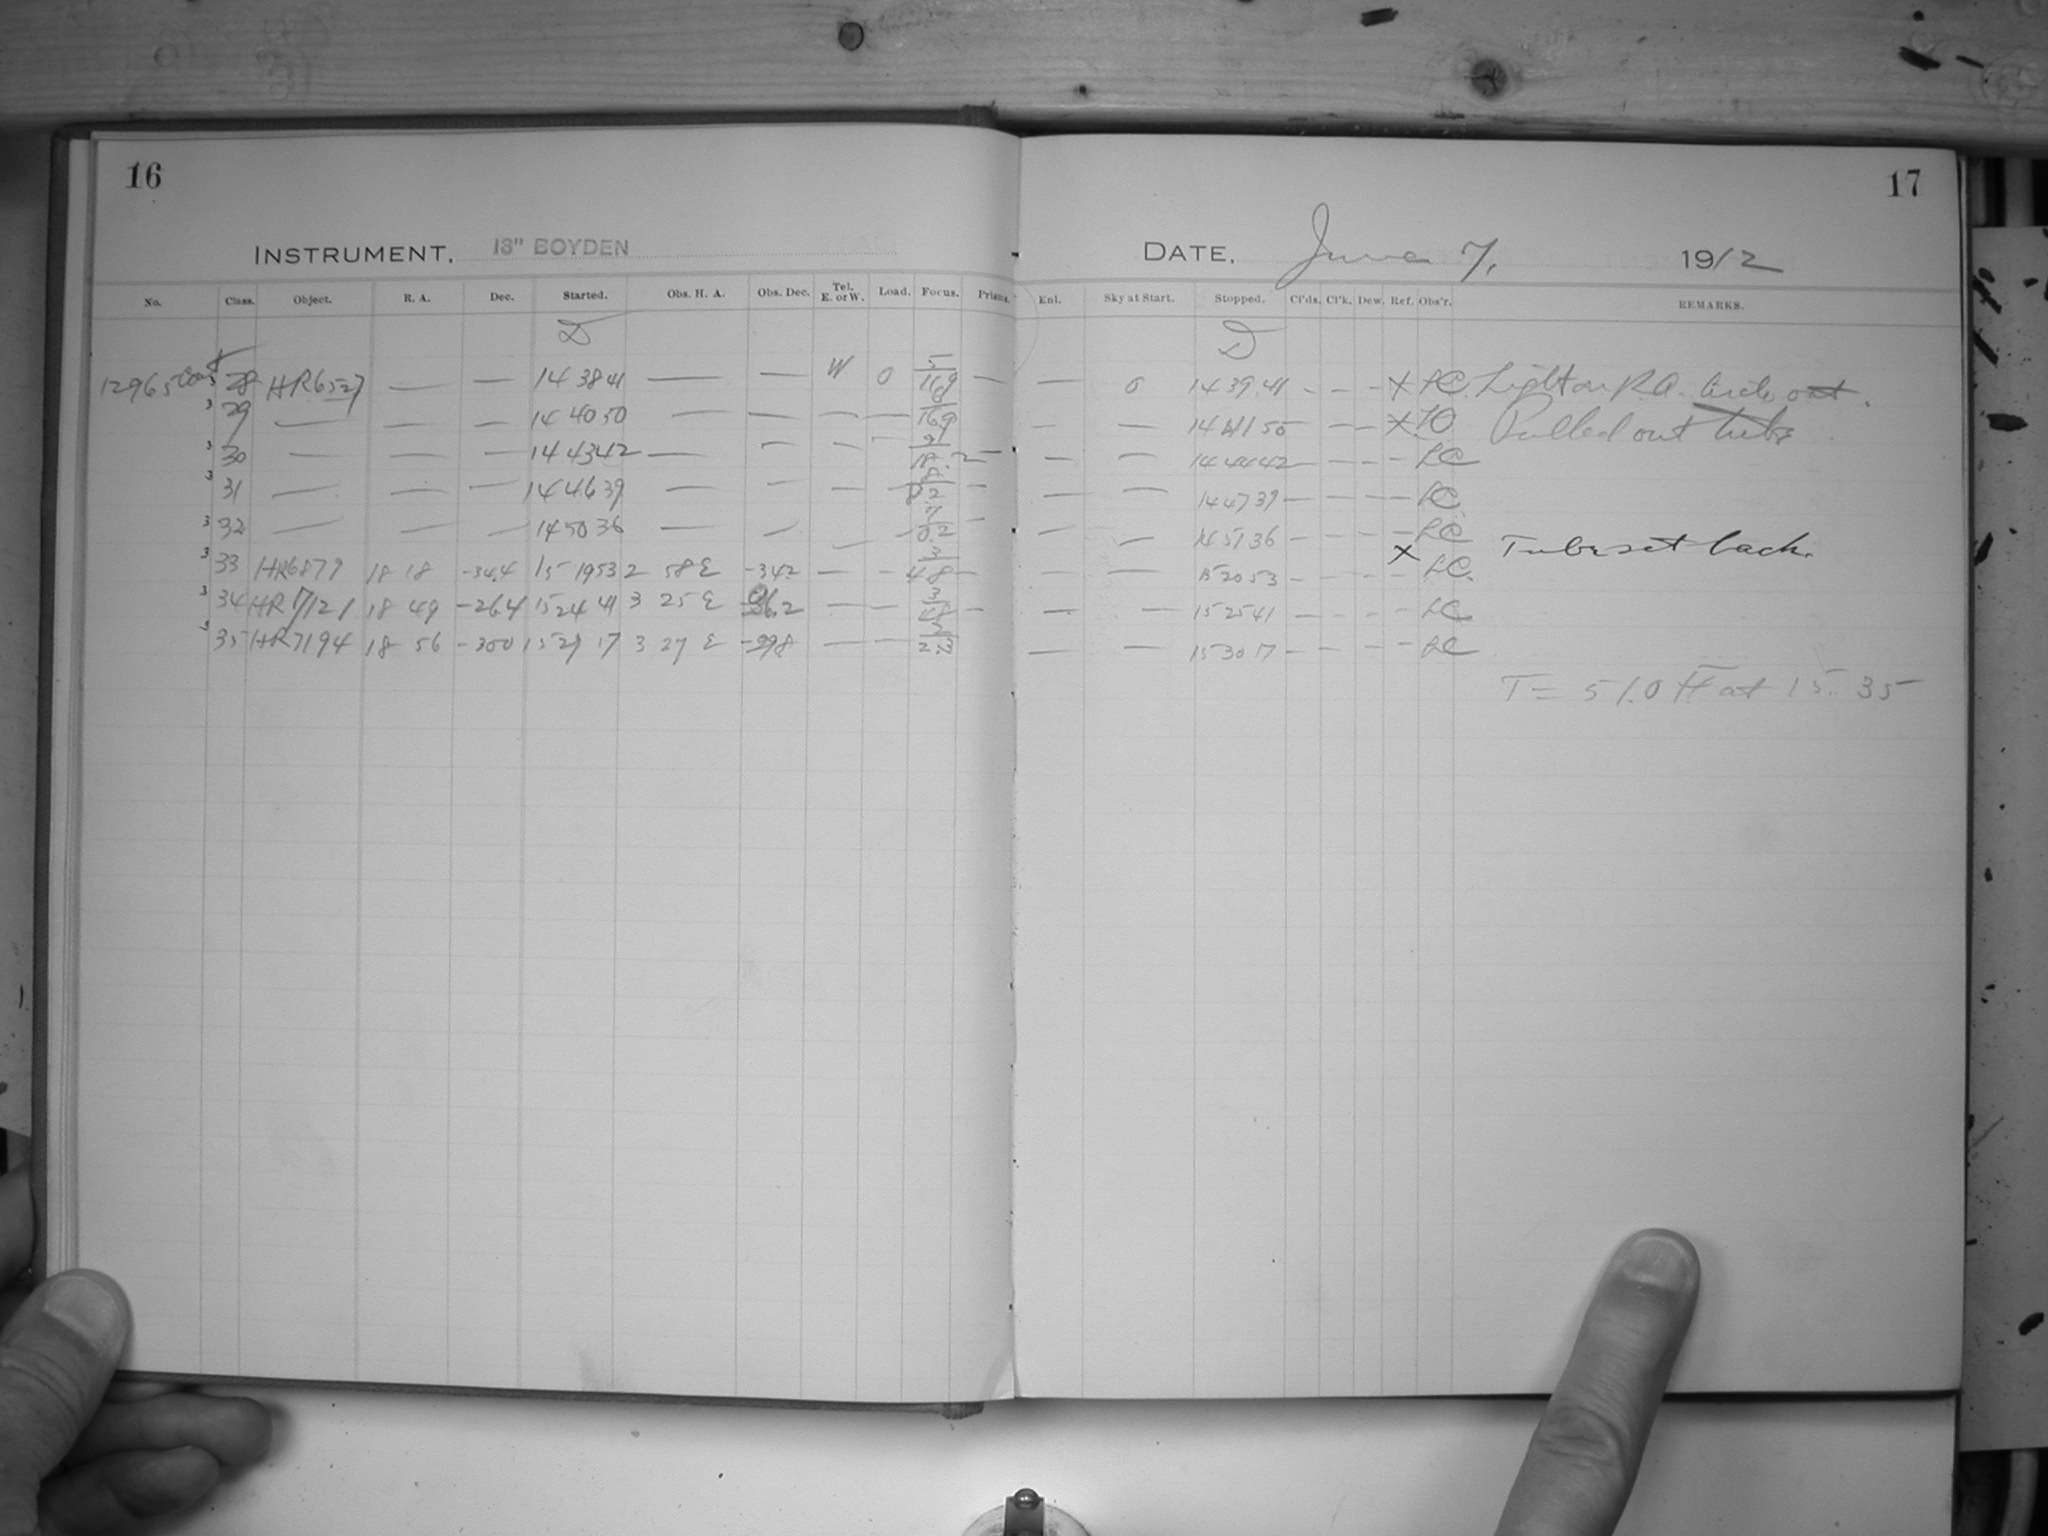 16
INSTRUMENT. 13" BOYDEN
No. Class. Object. R. A. Dec. Started. Obs. H. A. Obs. Dec. Tel. E. or W. Load. Focus. Prisms.
D
12965 Cont 3 28 HR6527 — — 14 38 41 — — W 0 5/169 —
3 29 — — — 14 40 50 — — — — 169
3 30 — — — 14 43 42 — — — — 18.2 —
3 31 — — — 14 46 39 — — — — 8.2 —
3 32 — — — 14 50 36 — — — — 7/0.2 —
3 33 HR6879 18 18 -34.4 15 19 53 2 58 E -34.2 — — 3/48 —
3 34 HR7121 18 49 -26.4 15 24 41 3 25 E -26.2 — — 3/48 —
3 35 HR7194 18 56 -30.0 15 29 17 3 27 E -29.8 — — 2.3
17
DATE. June 7, 1912
Enl. Sky at Start. Stopped. Cl'ds. Cl'k. Dew. Ref. Obs'r. REMARKS.
D
— 0 14 39 41 - - - X LC. Light on R.A. circle out.
— — 14 41 50 - — — X Pulled out tube
— — 14 44 42 — — - - LC
— — 14 47 39 — — - - LC
— — 14 51 36 - - - - LC
— — 15 20 53 - - - X LC. Tube set back.
— — 15 25 41 - - - - LC
— — 15 30 17 - - - - LC
T = 51.0 F at 15 35